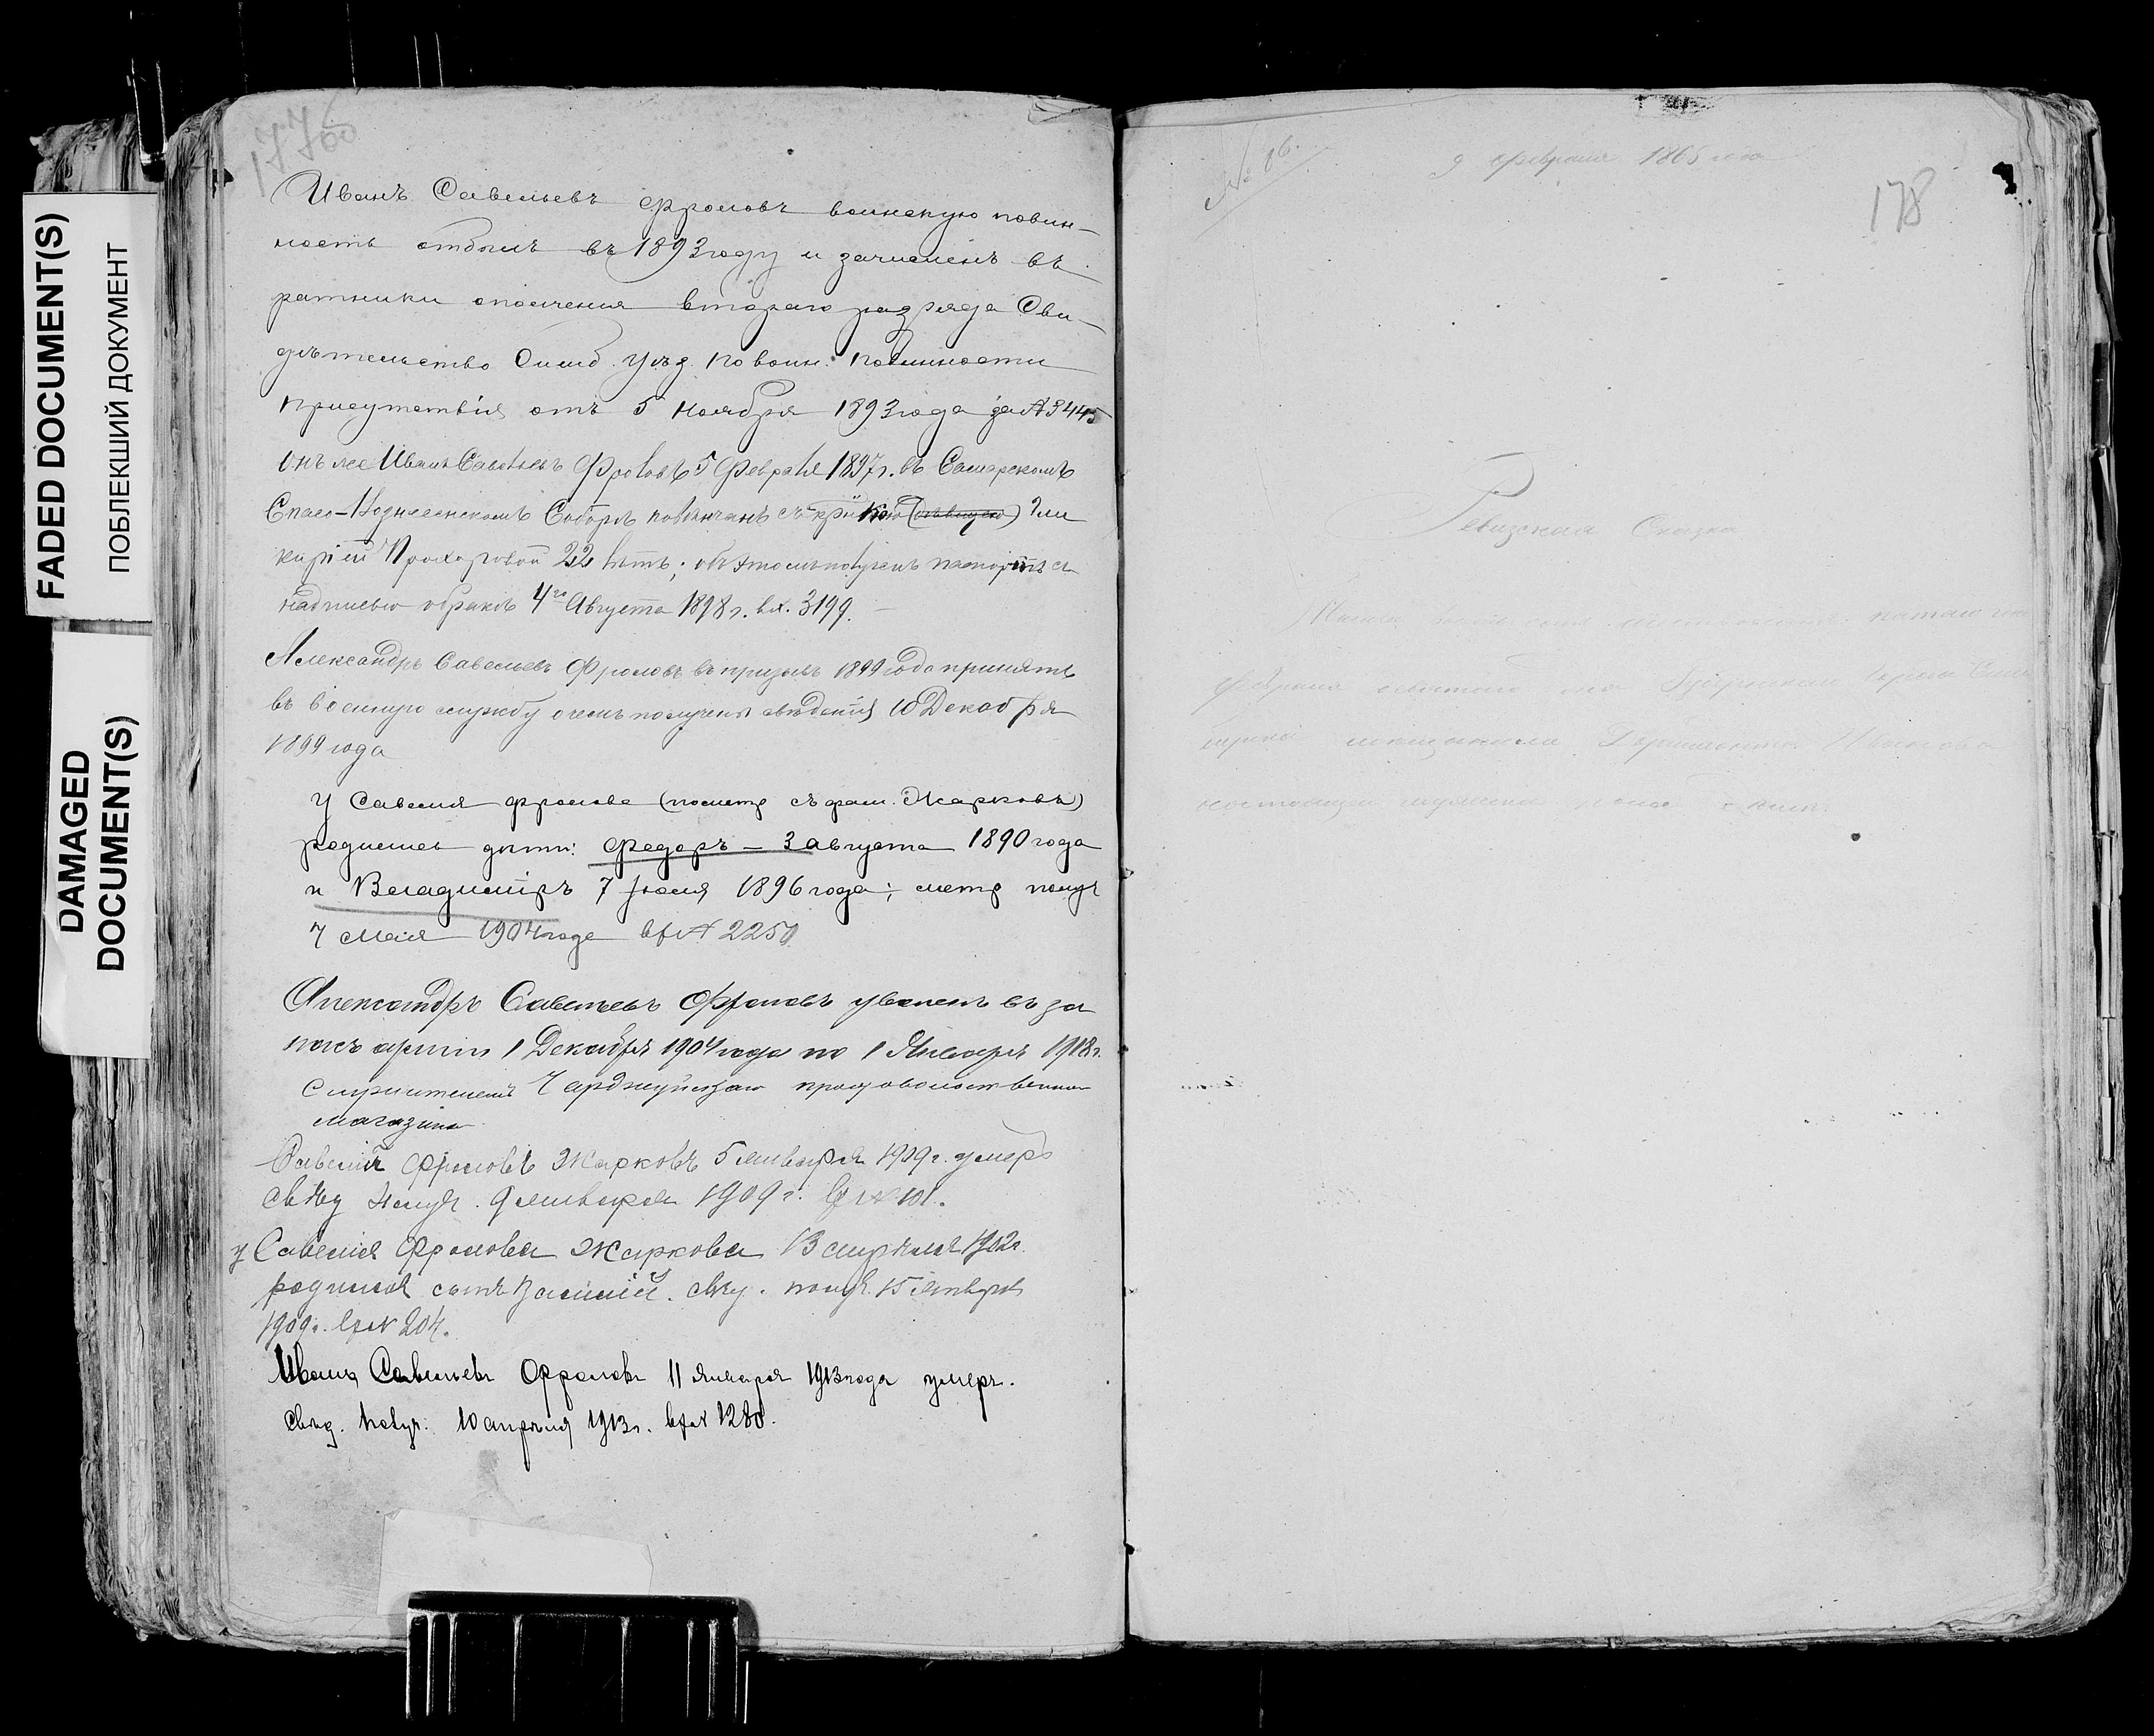 FADED DOCUMENT(S)
ПОБЛЕКШИЙ ДОКУМЕНТ
DAMAGED
DOCUMENT(S)
177об
Иванъ Савельевъ Фроловъ воинскую повин-
ность отбылъ въ 1893 году и зачисленъ въ
ратники ополчения втораго разряда Сви-
дѣтельство Симб. Уѣзд. по воин: повинности
присутствія отъ 5 Ноября 1893 года за № 3445
Онъ же Иванъ Савельевъ Фроловъ 5 Февраля 1897 г. въ Самарскомъ
Спасо-Вознесенскомъ Соборѣ повѣнчанъ съ
Прохоровой 22 лѣтъ; объ этомъ полученъ паспортъ съ
надписью о бракѣ 4го Августа 1898 г. вх. 3199.
Александръ Савельевъ Фроловъ въ призывъ 1899 года принятъ
въ военную службу о чемъ получены свѣденія 10 Декабря
1899 года
У Савелия Фролова (по метр съ фам. Жарковъ)
родились дѣти: Федоръ – 3 августа 1890 года
и Владиміръ 7 Іюля 1896 года; метр получ
7 Мая 1904 года вх № 2250
Александръ Савельевъ Фроловъ уволенъ въ за
пасъ арміи 1 Декабря 1904 года по 1 Января 1918 г.
служителемъ Чарджуйскаго продовольственнаго
магазина
Савелій Фроловъ Жарковъ 5 января 1909 г. умеръ
свѣд получ. 9 января 1909 г. вх № 101.
у Савелія Фролова Жаркова 13 апрѣля 1902 г.
родился сынъ Василій. свѣд. получ. 15 января
1909 г. вх № 204.
Иванъ Савельевъ Фроловъ 11 января 1913 года умеръ.
Свѣд. получ: 10 апрѣля 1913 г. вх № 1280.
№ 86.
9 февраля 1865 года
178
Ревизская Сказка